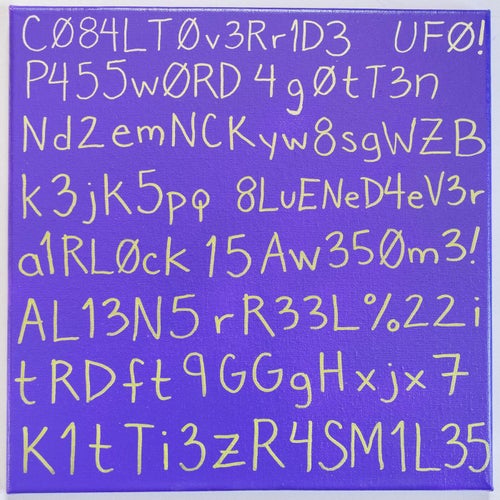 CØ84LTØv3Rr1D3 UFØ!
P455wØRD 4gØtT3n
Nd2emNCKyw8sgWZB
k3jK5pq 8LuENeD4eV3r
a1RLØck 15 Aw35Øm3!
AL13N5rR33L%22i
tRDft9GGgHxjx7
K1tTi3zR4SM1L35